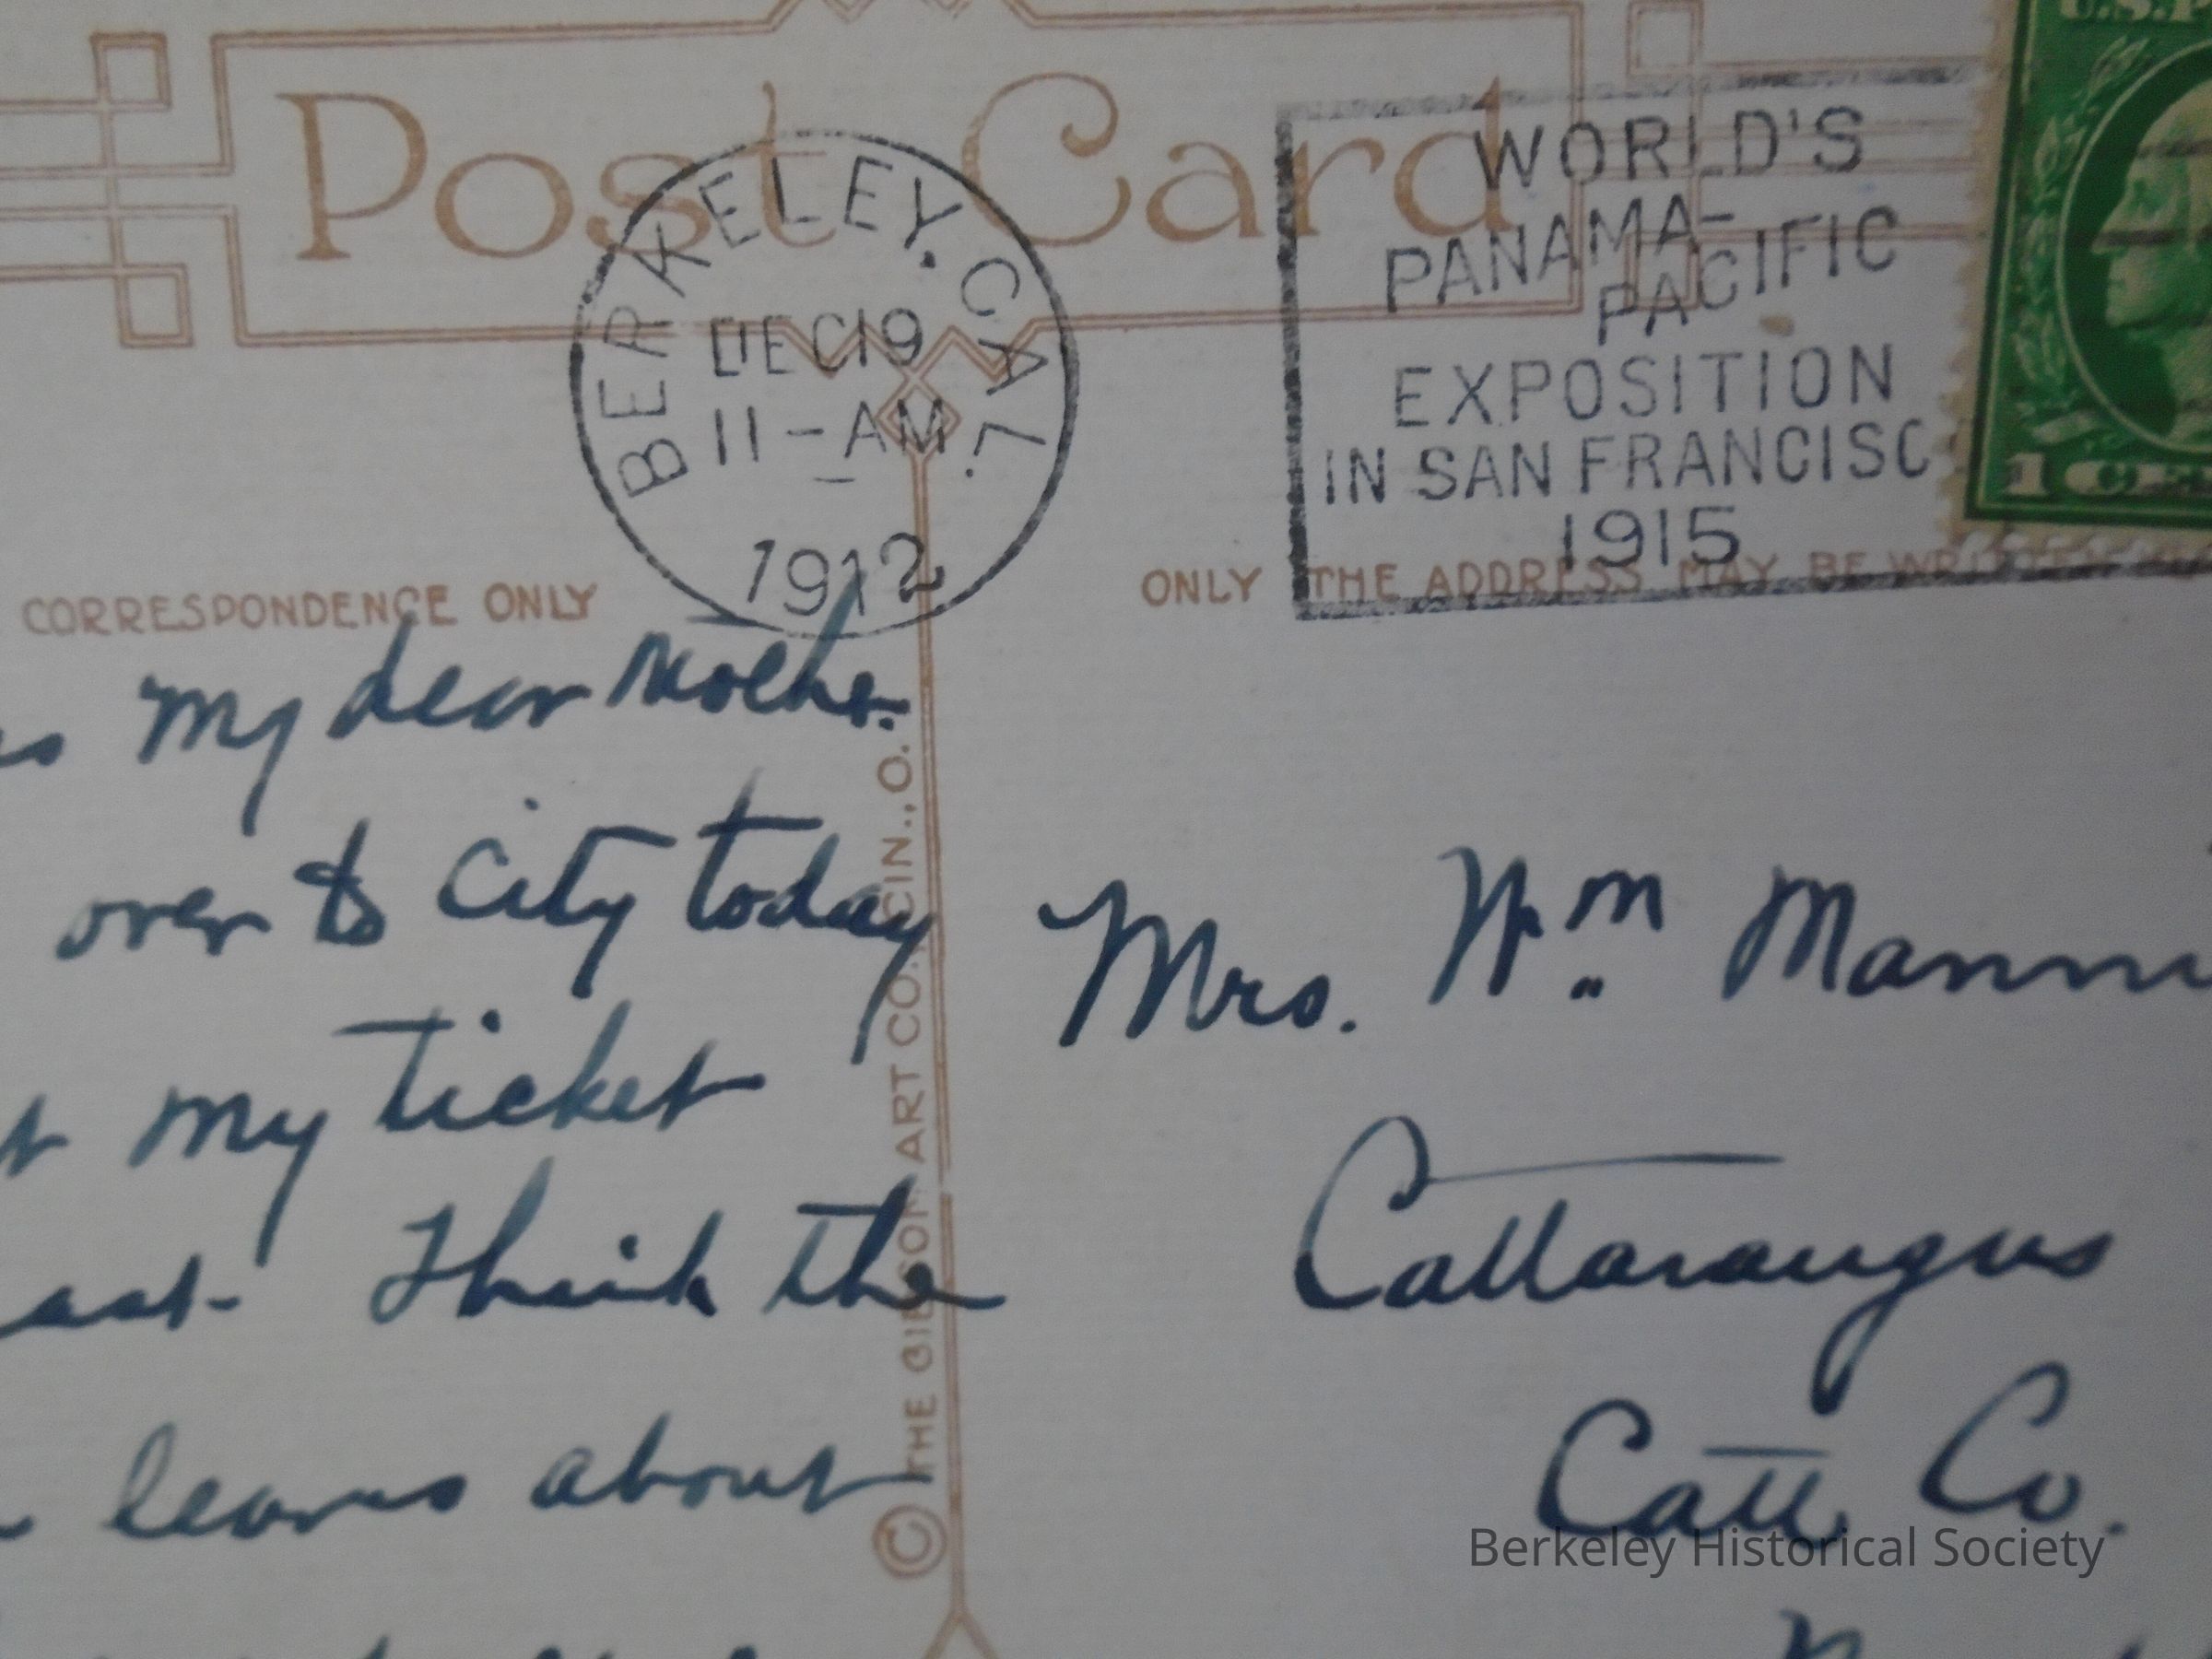 U.S.P
Post Card
BERKELEY, CAL.
DEC 19
11-AM
1912
WORLD'S
PANAMA-
PACIFIC
EXPOSITION
IN SAN FRANCISC
1915
1 CE
CORRESPONDENCE ONLY
ONLY THE ADDRESS MAY BE WRITTEN
my dear Mother.
over to City today
my ticket
Think the
leaves about
© THE GIBSON ART CO., CIN., O.
Mrs. Wm Manni
Cattaraugus
Catt Co.
Berkeley Historical Society